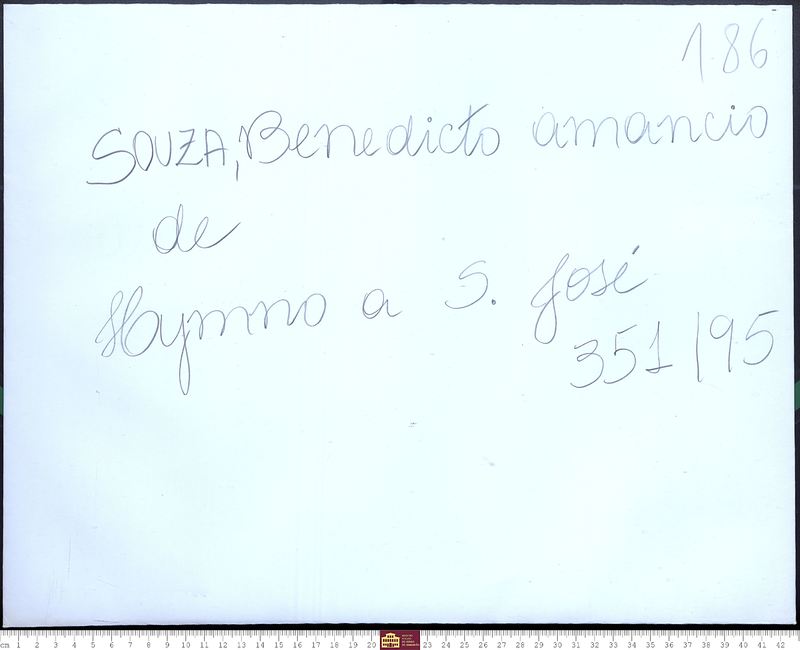 186
SOUZA, Benedicto amancio
de
Hymno a S. José
351/95
cm 1 2 3 4 5 6 7 8 9 10 11 12 13 14 15 16 17 18 19 20 23 24 25 26 27 28 29 30 31 32 33 34 35 36 37 38 39 40 41 42